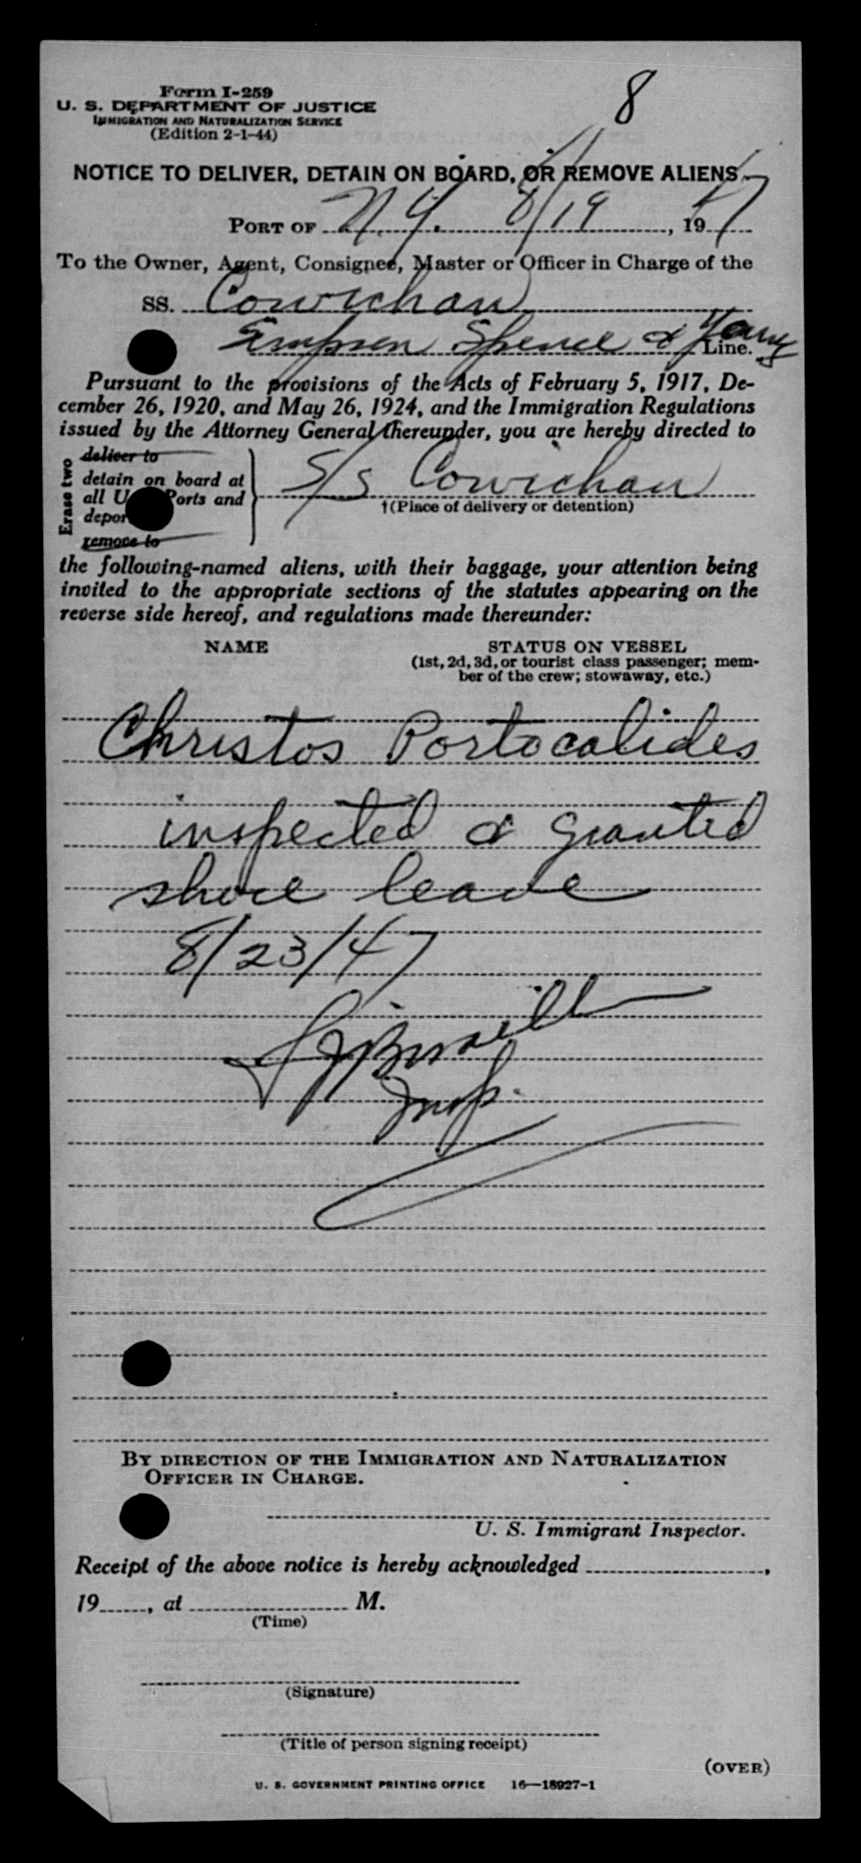 8
Form I-259
U. S. DEPARTMENT OF JUSTICE
IMMIGRATION AND NATURALIZATION SERVICE
(Edition 2-1-44)
NOTICE TO DELIVER, DETAIN ON BOARD, OR REMOVE ALIENS
PORT OF N.Y. 8/19, 1947
To the Owner, Agent, Consignee, Master or Officer in Charge of the
SS. Cowichan
Simpson Spence & Young Line.
Pursuant to the provisions of the Acts of February 5, 1917, De-
cember 26, 1920, and May 26, 1924, and the Immigration Regulations
issued by the Attorney General thereunder, you are hereby directed to
Erase two
deliver to
detain on board at
all U Ports and
depor
remove to
S/S Cowichan
†(Place of delivery or detention)
the following-named aliens, with their baggage, your attention being
invited to the appropriate sections of the statutes appearing on the
reverse side hereof, and regulations made thereunder:
NAME STATUS ON VESSEL
(1st, 2d, 3d, or tourist class passenger; mem-
ber of the crew; stowaway, etc.)
Christos Portocalides
inspected & granted
shore leave
8/23/47
Insp.
BY DIRECTION OF THE IMMIGRATION AND NATURALIZATION
OFFICER IN CHARGE.
U. S. Immigrant Inspector.
Receipt of the above notice is hereby acknowledged ,
19 , at M.
(Time)
(Signature)
(Title of person signing receipt)
(OVER)
U. S. GOVERNMENT PRINTING OFFICE 16—18927-1